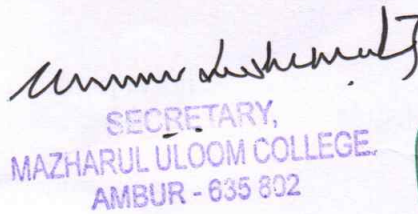 SECRETARY,
MAZHARUL ULOOM COLLEGE.
AMBUR - 635 802